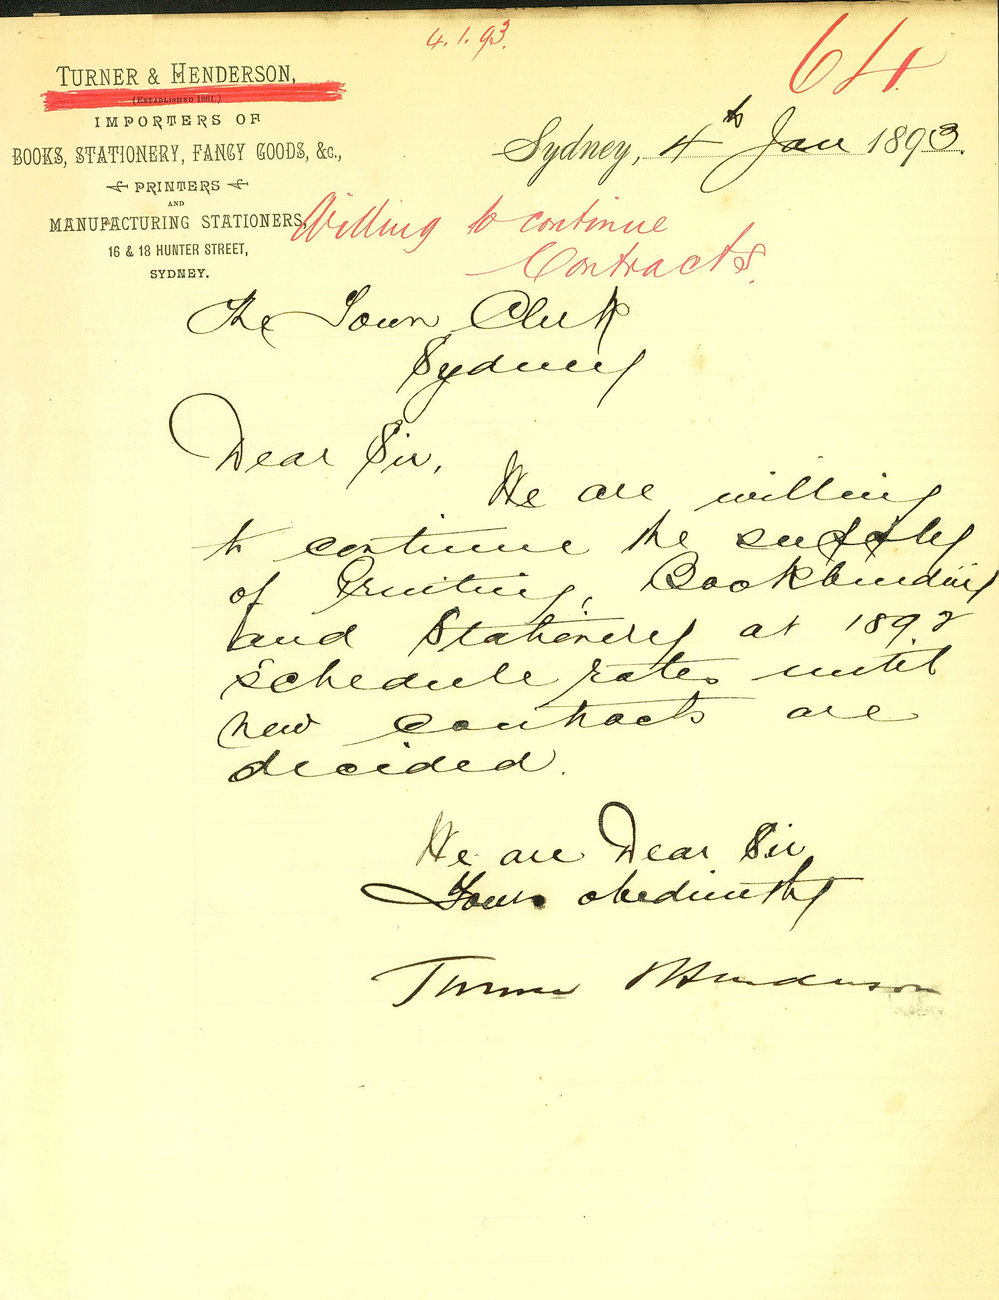 4.1.93.
64.
TURNER & HENDERSON,
(ESTABLISHED 1861.)
IMPORTERS OF
BOOKS, STATIONERY, FANCY GOODS, &c.,
PRINTERS
AND
MANUFACTURING STATIONERS,
16 & 18 HUNTER STREET,
SYDNEY.
Sydney, 4th Jan 1893.
Willing to continue
Contracts.
The Town Clerk
Sydney
Dear Sir,
We are willing
to continue the supply
of Printing, Bookbinding
and Stationery at 1892
schedule rates until
new contracts are
decided.
We are Dear Sir
Yours obediently
Turner & Henderson